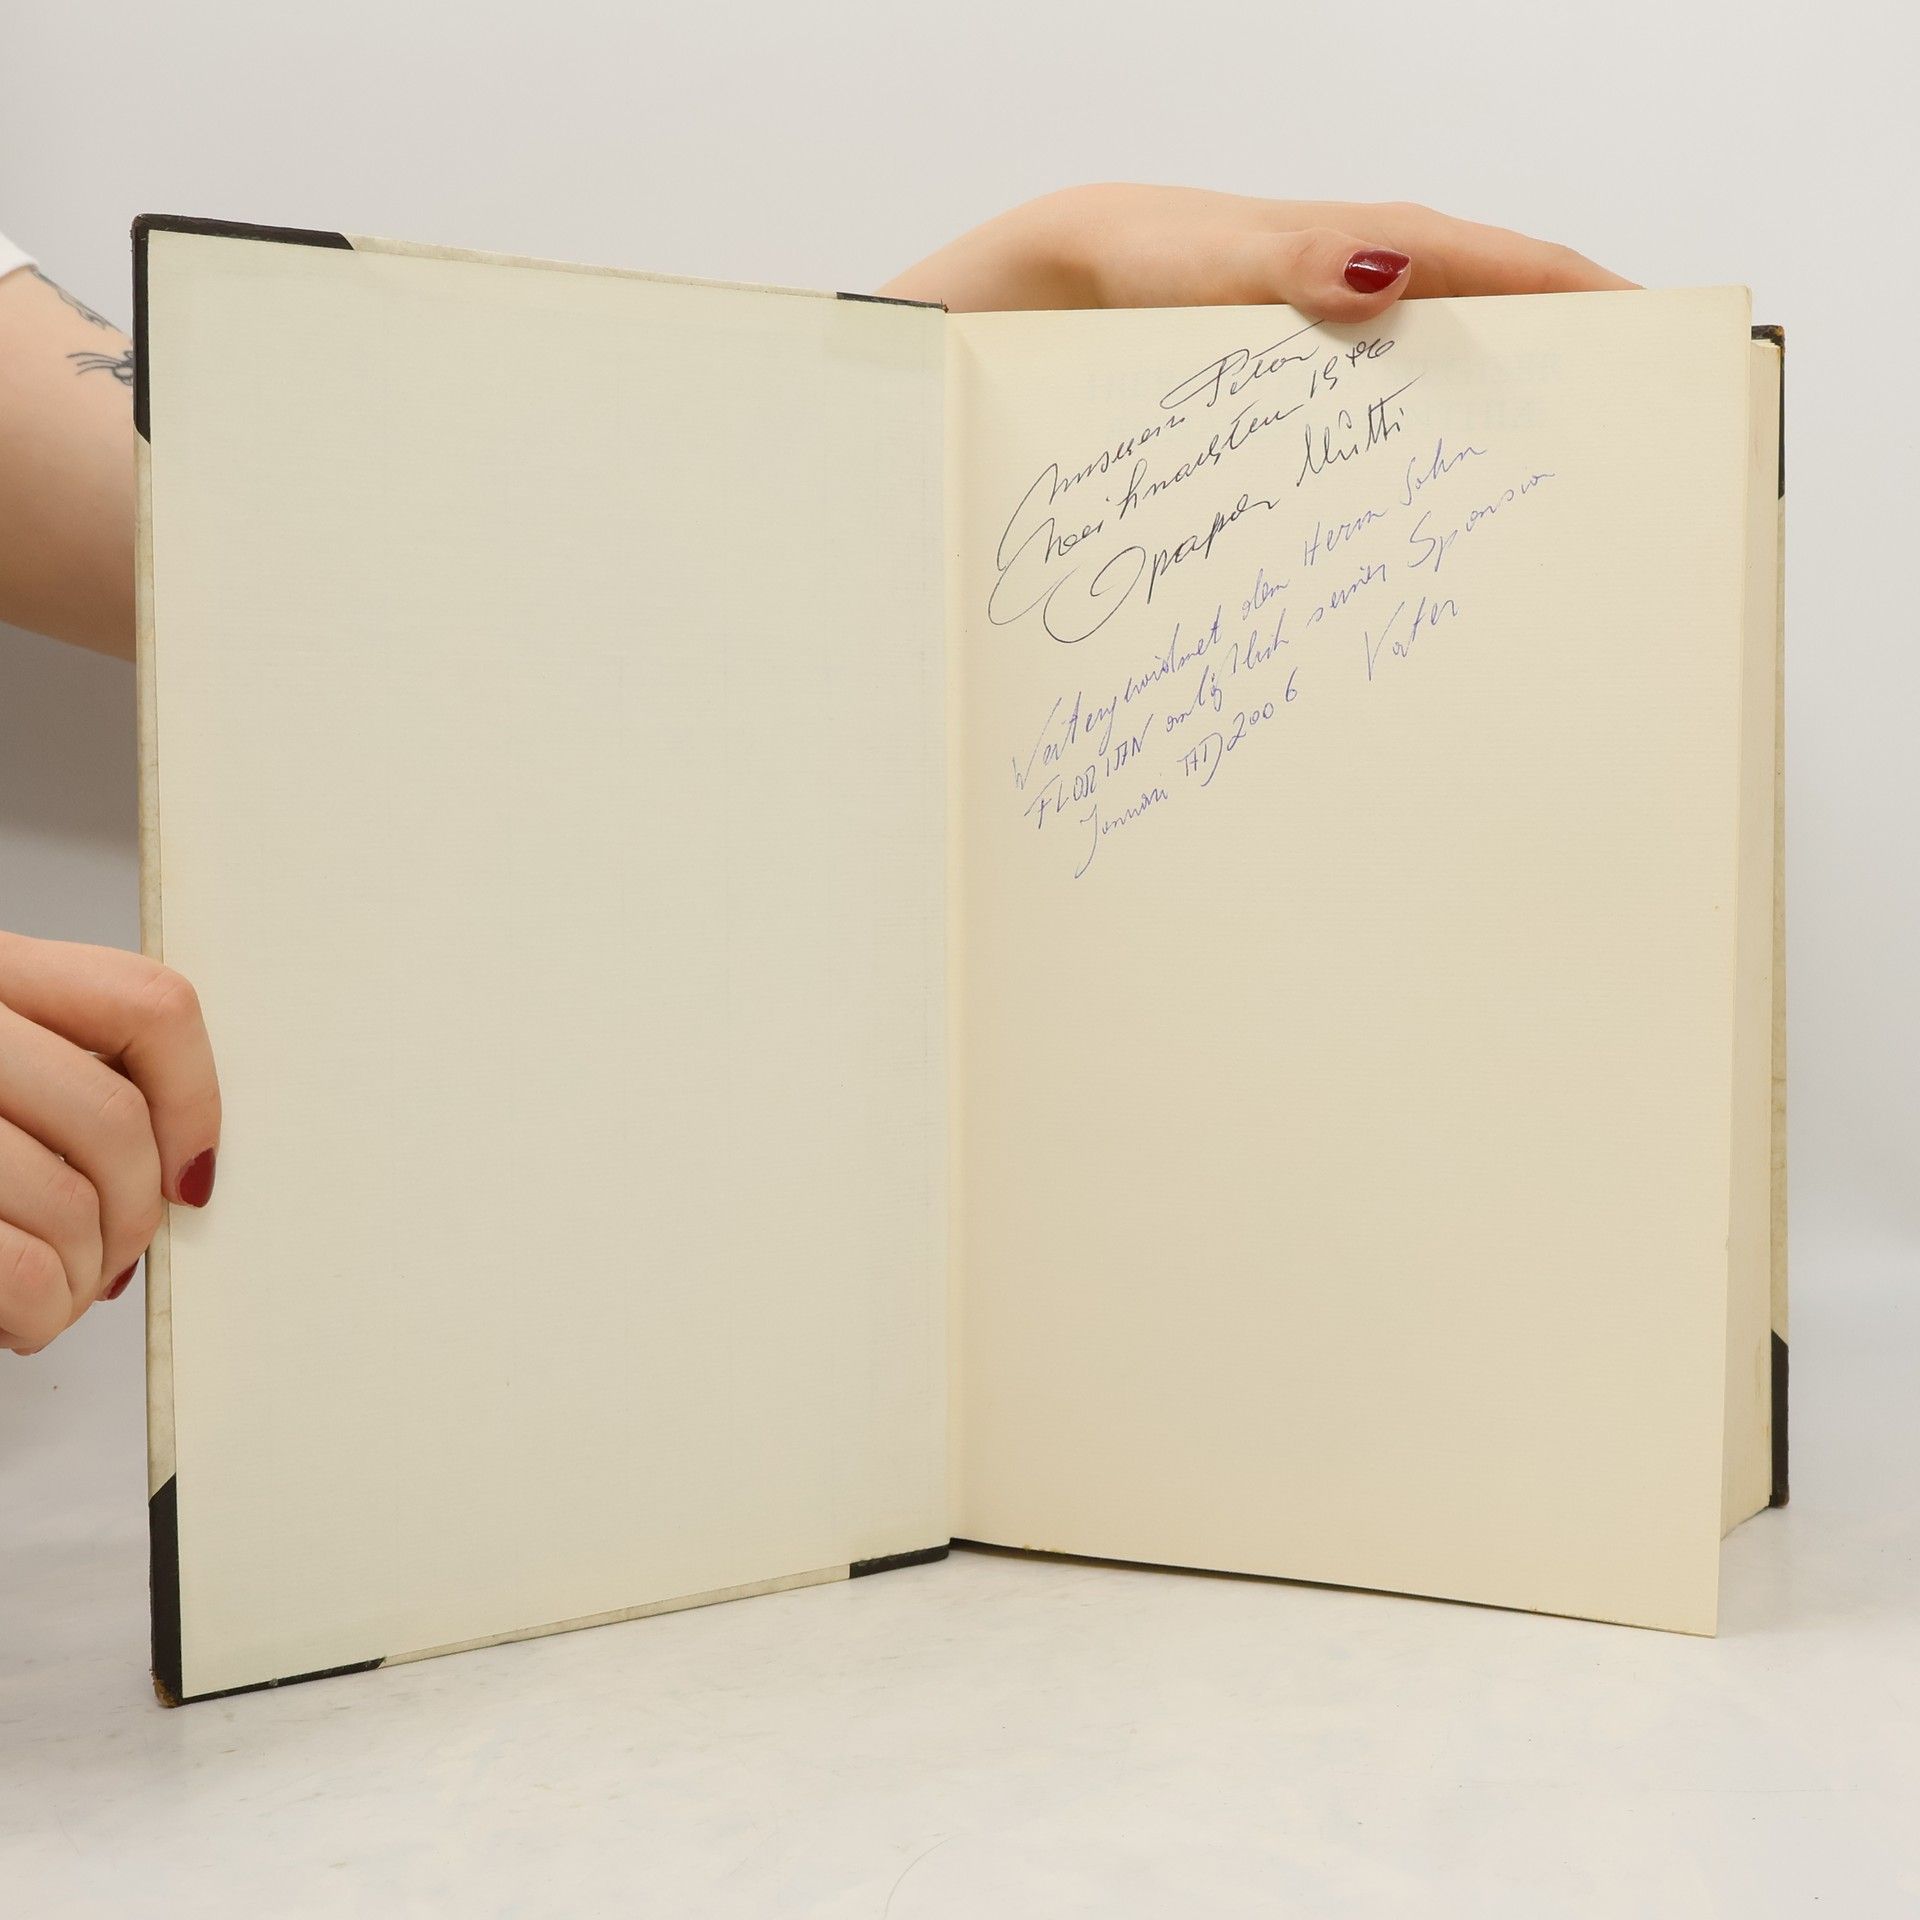 unserem Peter
Weihnachten 19
Mutti
Weitergewidmet dem Herrn Sohn
FLORIAN anläßlich seiner Sponsion
Januar AD 2006 Vater